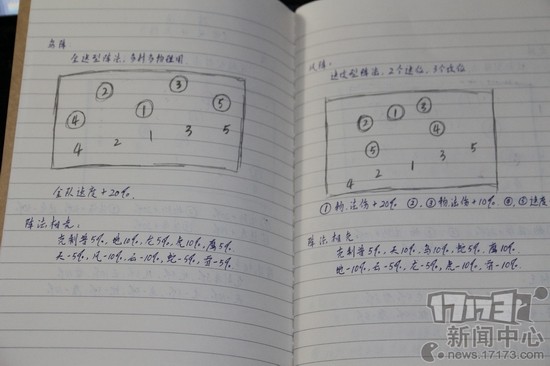 鸟阵
全速型阵法,多封多物理用
② ③
④ ① ⑤
4 2 1 3 5
全队速度+20%.
阵法相克:
克制普5%,地10%,龙5%,虎10%,鹰5%
天-5%,风-10%,云-10%,蛇-5%,雷-5%
风阵
速攻型阵法,2个速位,3个攻位
② ① ③
⑤ ④
4 2 1 3 5
①物.法伤+20% ②,③物法伤+10% ④,⑤速度
阵法相克
克制普5%,天10%,鸟10%,蛇5%,鹰10%
地-10%,云-5%,龙-5%,虎-10%,雷-10%
17173
新闻中心
news.17173.com